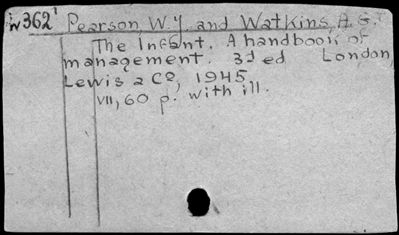 W362¹ Pearson W.Y. and Watkins, A.G.
The Infant. A handbook of
management. 3d ed London,
Lewis & Co, 1945
VII, 60 p. with ill.